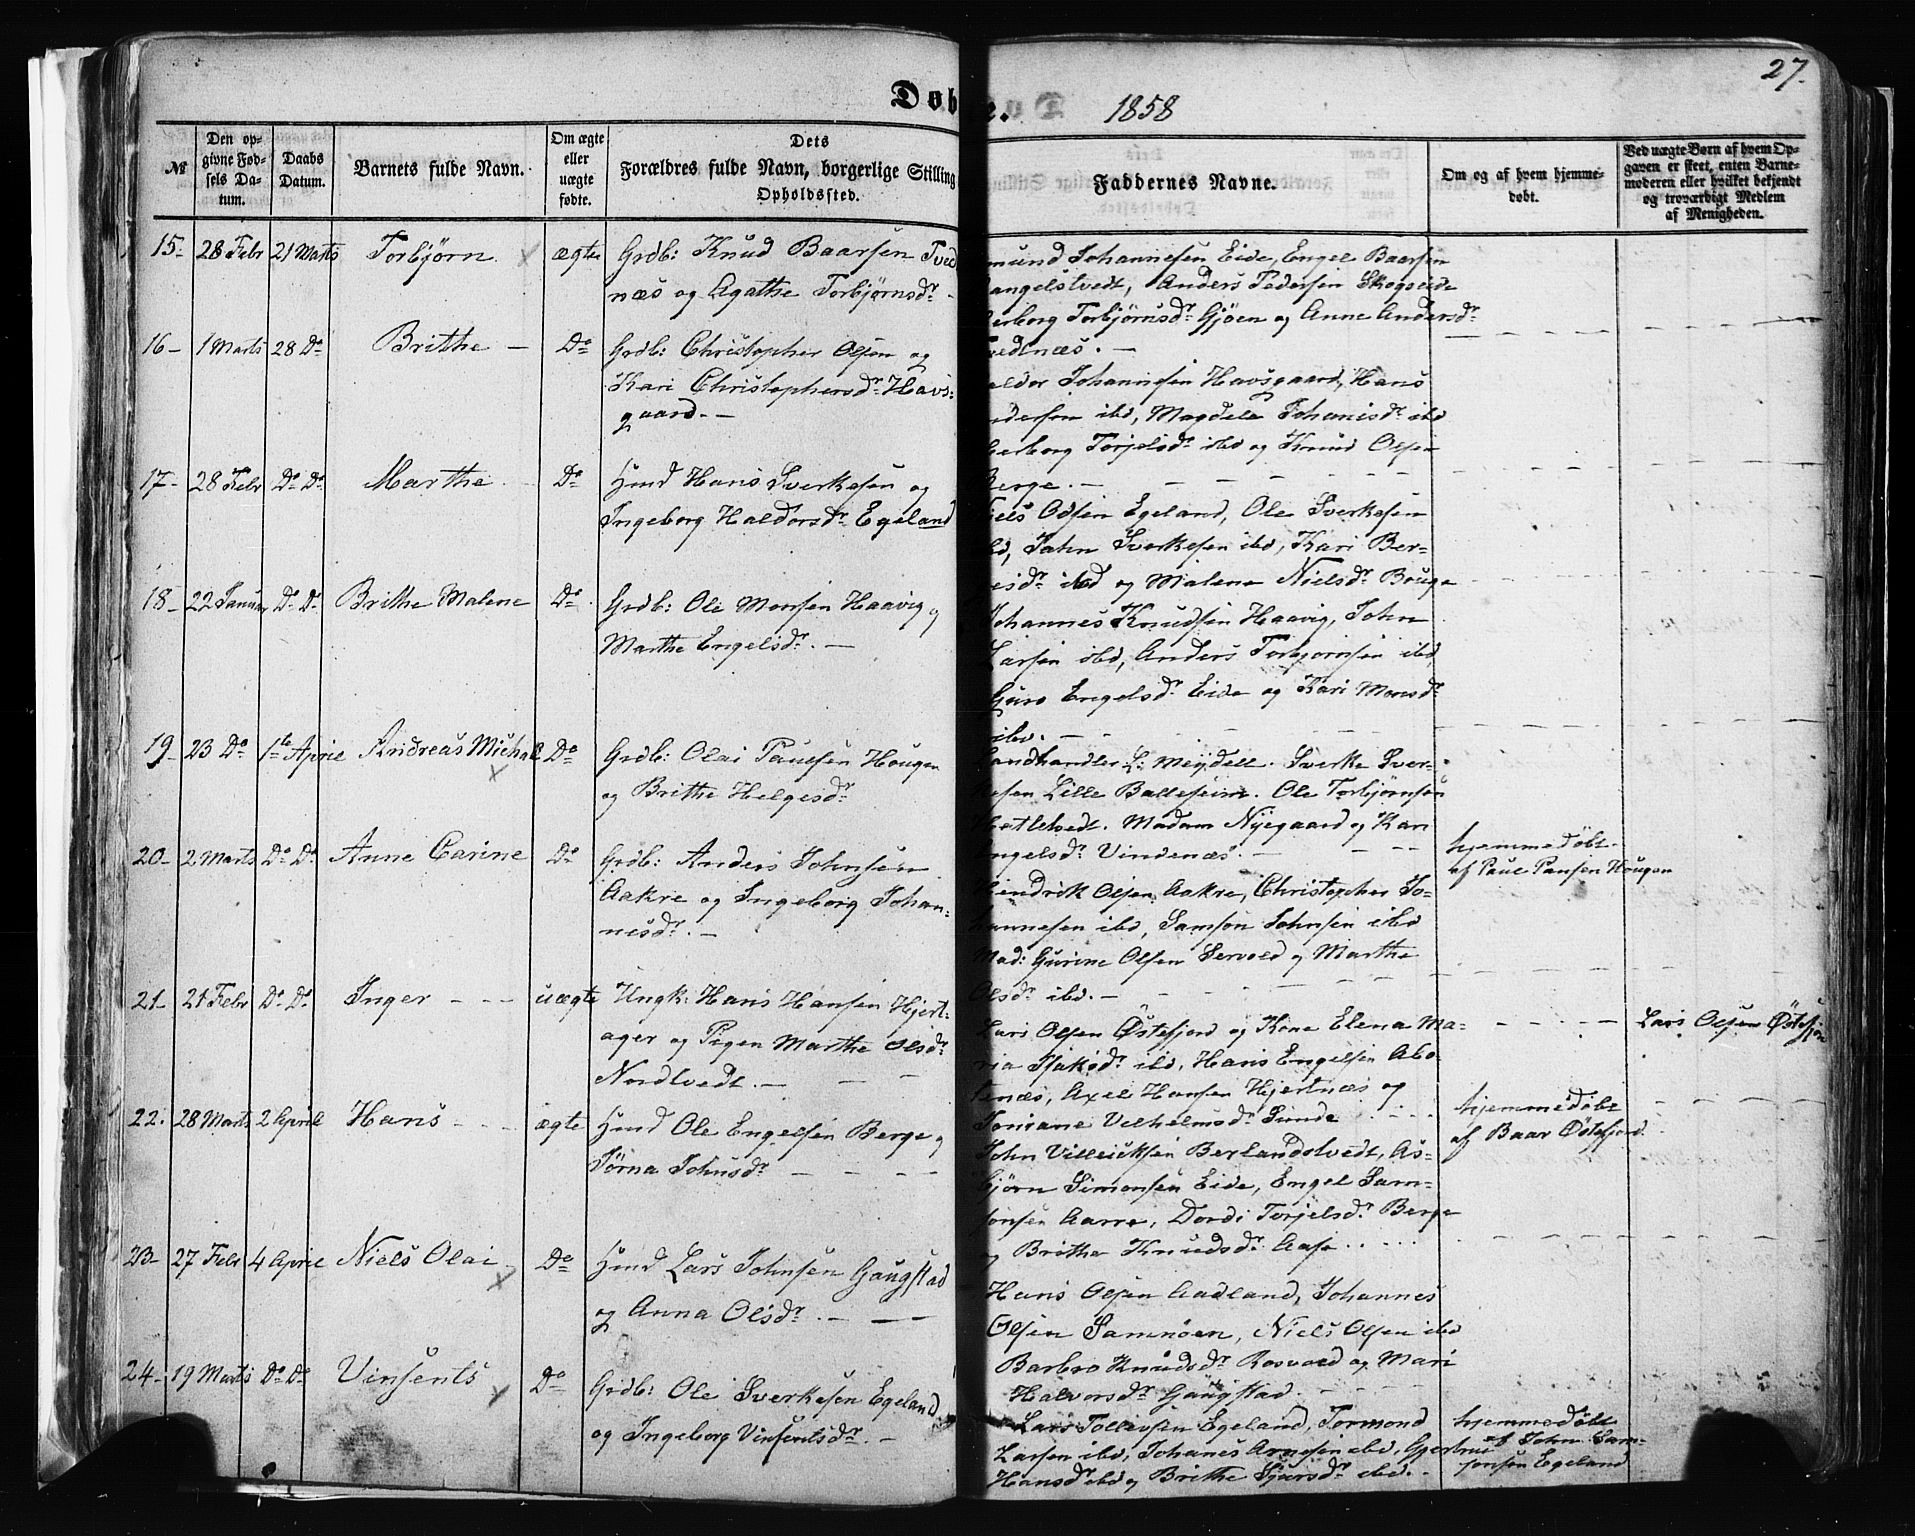 27.
Døbte. 1858
№
Den opgivne Fødsels Datum.
Daabs Datum.
Barnets fulde Navn.
Om ægte eller uægte fødte.
Dets Forældres fulde Navn, borgerlige Stilling
Opholdssted.
Faddernes Navne.
Om og af hvem hjemmedøbt.
Ved uægte Børn af hvem Opgaven er skeet, enten Barnemoderen eller hvilket bekjendt og troværdigt Medlem af Menigheden.
15- 28 Febr 21 Marts Torbjørn ægte Grdb: Knud Baarsen Tved
næs og Agathe Torbjørnsdr.
mund Johannesen Eide, Engel Baarsen
angelstvedt, Anders Pedersen Skogseide
erborg Torbjørnsdr Gjøen og Anne Andersdr
vednæs. —
16- 1 Marts 28 Do Brithe — Do Grdb: Christopher Olsen og
Kari Christophersdr. Havs-
gaard. —
aldor Johannesen Havsgaard, Hans
ndersen ibd, Magdele Johanisdr ibd
gerborg Torjelsdr ibd og Knud Olsen
Berge. —
17- 28 Febr Do Do Marthe Do Hmd Hans Sverkesen og
Ingeborg Haldorsdr. Egeland
iels Odsen Egeland, Ole Sverkesen
bd, John Sverkesen ibd, Kari Ber-
esdr ibd og Malene Nielsdr Bouge
18- 22 Januar Do Do Brithe Malene Do Grdb: Ole Monsen Haavig og
Marthe Engelsdr. —
Johannes Knudsen Haavig, John
Larsen ibd, Anders Torbjørnsen ibd,
Guro Engelsdr Eide og Kari Monsdr
ibd. —
19- 23 Do 1ste April Andreas Michael Do Grdb: Olai Paulsen Hougen
og Brithe Helgesdr
Landhandler L: Meydell. Sverke Sver-
kesen Lille Balleseim. Ole Torbjørnsen
Hatletvedt. Madam Nyegaard og Kari
Engelsdr Vindenæs. —
hjemmedøbt
af Paul Paulsen Hougen
20- 2 Marts Do Do Anne Carine Do Grdb: Anders Johnsen
Aakre og Ingeborg Johan-
nisdr. —
Hendrik Olsen Aakre, Christopher Jo-
hannesen ibd, Samson Johnsen ibd
Mad: Gurine Olsen Servold og Marthe
Olsdr ibd. —
21- 21 Febr Do Do Inger — uægte Ungk: Hans Hansen Hjert-
ager og Pigen Marthe Olsdr
Nordtvedt. —
Lars Olsen Østefjord og Kone Elena Ma-
ria Isaksdr ibd, Hans Engelsen Abo-
tenæs, Axel Hansen Hjertnæs og
Joniane Velhelmsdr Sunde
Lars Olsen Østefjor
22. 28 Marts 2 April Hans ægte Hmd Ole Engelsen Berge og
Jørna Johnsdr —
John Villeiksen Berlandstvedt, As-
bjørn Simonsen Eide, Engel Sam-
sonsen Aarre, Dordi Torjelsdr Berge
og Brithe Knudsdr Aase
hjemmedøbt
af Baar Østefjord
23- 27 Febr 4 April Niels Olai Do Hmd Lars Johnsen Gaugstad
og Anna Olsdr. —
Hans Olsen Aadland, Johannes
Olsen Samnøen, Niels Olsen ibd
Barbro Knudsdr Rosvold og Mari
Halvorsdr Gaugstad.
24- 19 Marts Do Do Vinsents Do Grdb: Ole Sverkesen Egeland
og Ingeborg Vinsentsdr. —
Lars Tollevsen Egeland, Tormond
Larsen ibd, Johanes Arnesen ibd, Gjertrue
Hansdr ibd og Brithe Sjursdr ibd.
hjemmedøbt
af John Sam-
sonsen Egeland